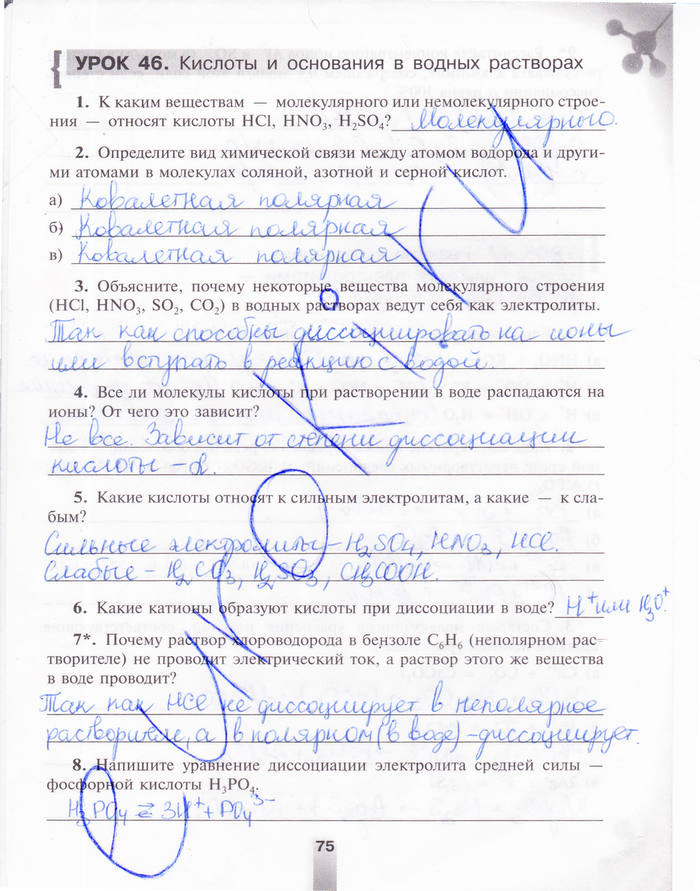 УРОК 46. Кислоты и основания в водных растворах
1. К каким веществам — молекулярного или немолекулярного строе-
ния — относят кислоты HCl, HNO₃, H₂SO₄? Молекулярного.
2. Определите вид химической связи между атомом водорода и други-
ми атомами в молекулах соляной, азотной и серной кислот.
а) Ковалетная полярная
б) Ковалетная полярная
в) Ковалетная полярная
3. Объясните, почему некоторые вещества молекулярного строения
(HCl, HNO₃, SO₂, CO₂) в водных растворах ведут себя как электролиты.
Так как способны диссоциировать на ионы
или вступать в реакцию с водой.
4. Все ли молекулы кислоты при растворении в воде распадаются на
ионы? От чего это зависит?
Не все. Зависит от степени диссоциации
кислоты – α.
5. Какие кислоты относят к сильным электролитам, а какие — к сла-
бым?
Сильные электролиты – H₂SO₄, HNO₃, HCl.
Слабые – H₂CO₃, H₂SO₃, CH₃COOH.
6. Какие катионы образуют кислоты при диссоциации в воде? H⁺ или H₃O⁺.
7*. Почему раствор хлороводорода в бензоле C₆H₆ (неполярном рас-
творителе) не проводит электрический ток, а раствор этого же вещества
в воде проводит?
Так как HCl не диссоциирует в неполярное
растворителе, а в полярном (в воде) – диссоциирует.
8. Напишите уравнение диссоциации электролита средней силы —
фосфорной кислоты H₃PO₄.
H₃PO₄ ⇄ 3H⁺ + PO₄³⁻
75